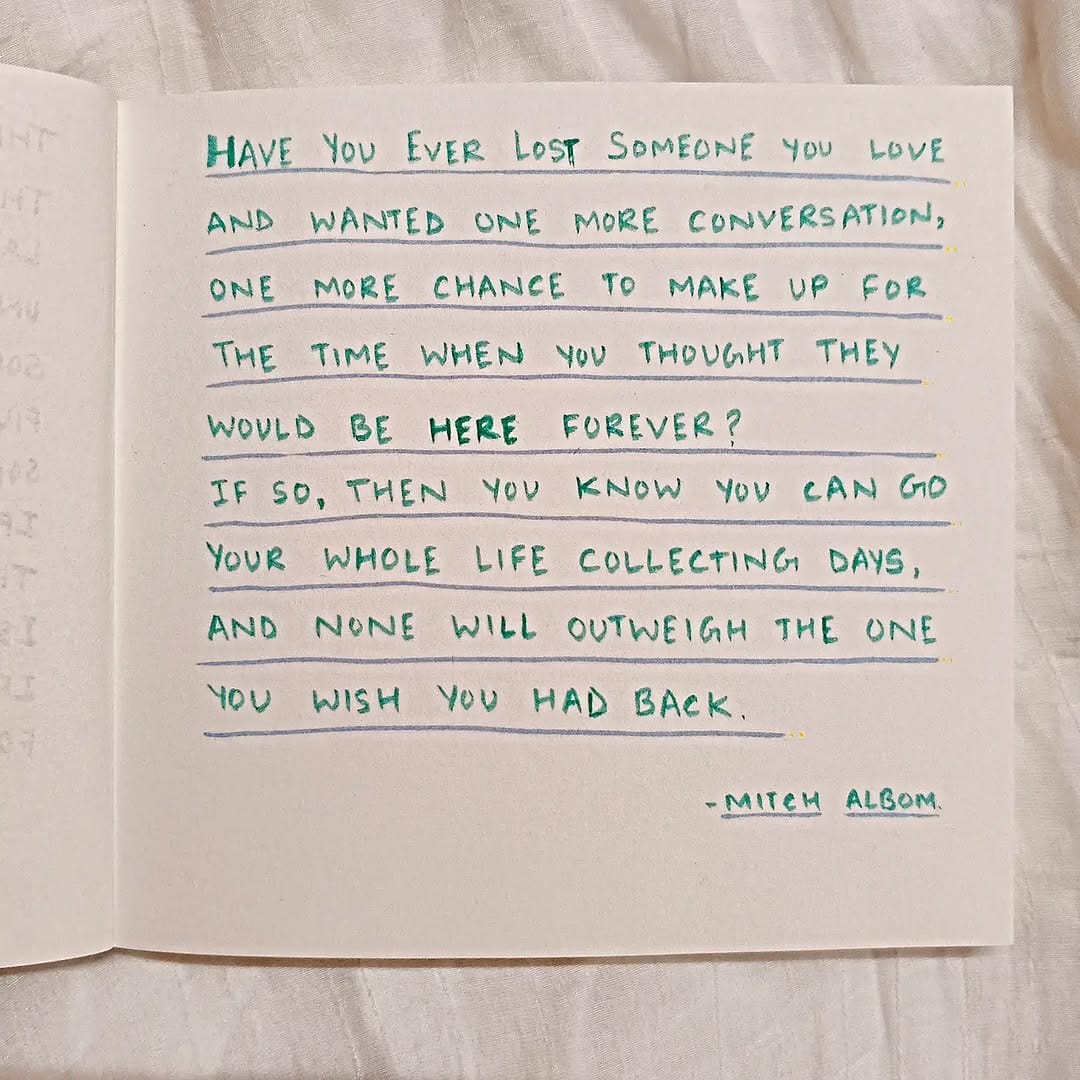 HAVE YOU EVER LOST SOMEONE YOU LOVE
AND WANTED ONE MORE CONVERSATION,
ONE MORE CHANCE TO MAKE UP FOR
THE TIME WHEN YOU THOUGHT THEY
WOULD BE HERE FOREVER?
IF SO, THEN YOU KNOW YOU CAN GO
YOUR WHOLE LIFE COLLECTING DAYS,
AND NONE WILL OUTWEIGH THE ONE
YOU WISH YOU HAD BACK.
-MITCH ALBOM.